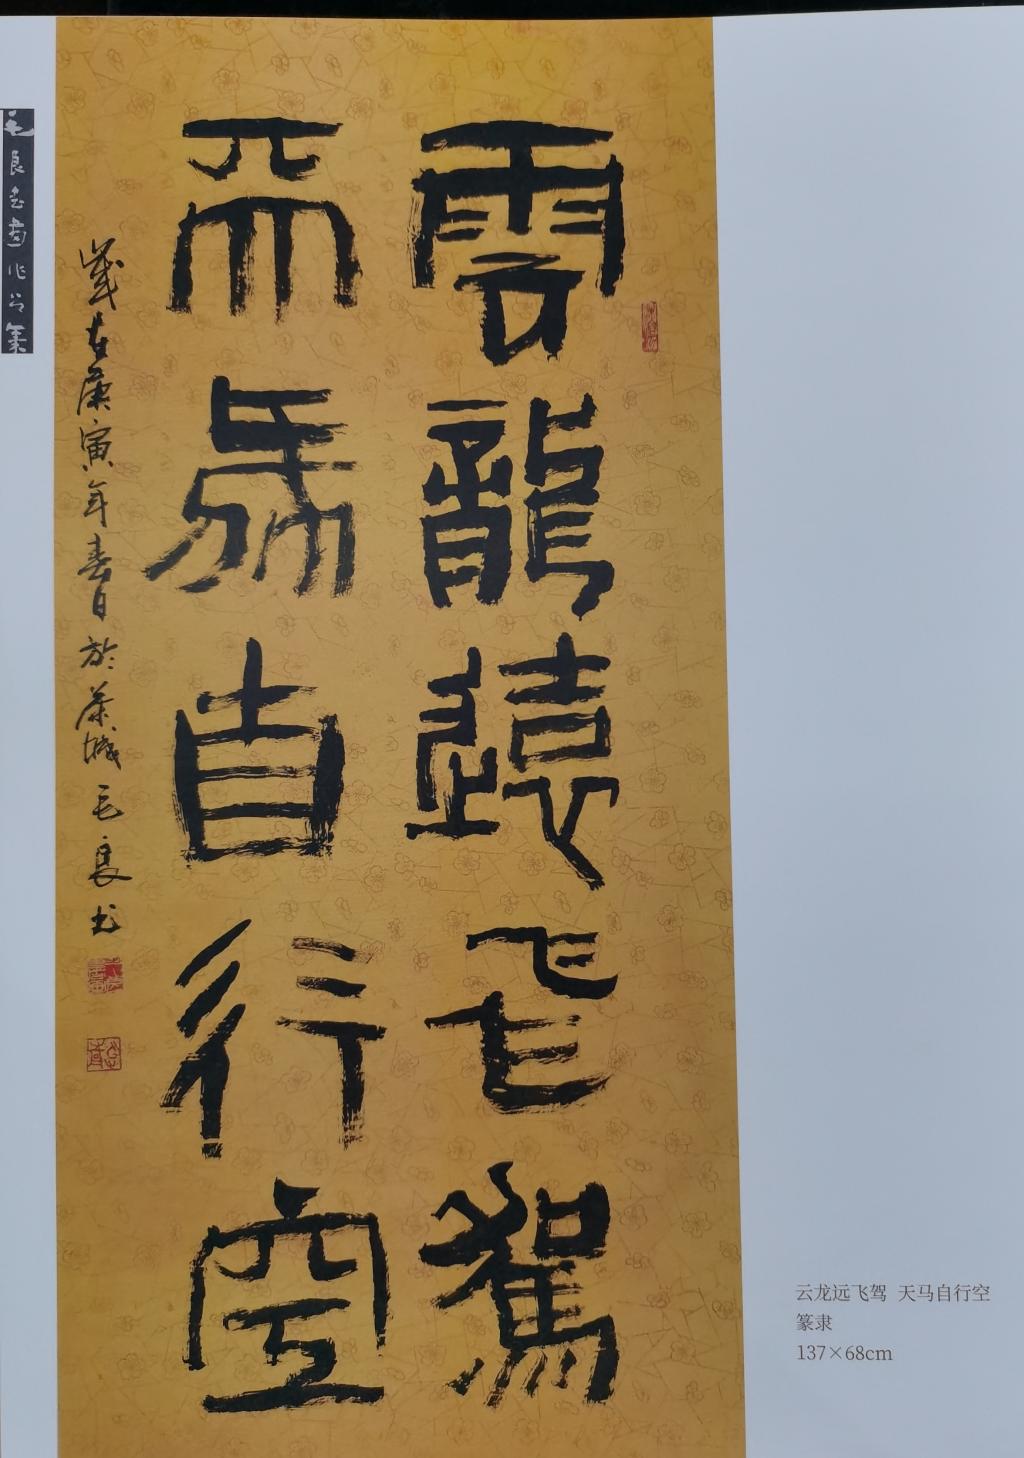 毛良書畫作品集
雲龍遠飛駕
天馬自行空
歲在庚寅年春日於茶城毛良书
云龙远飞驾 天马自行空
篆隶
137×68cm